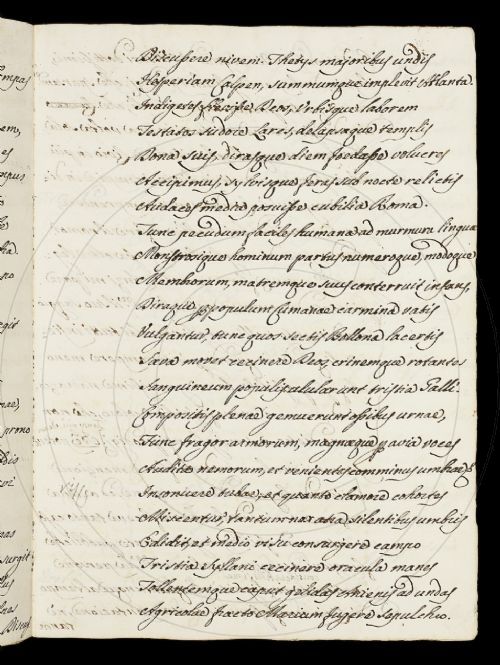 Discussere nivem. Thetys majoribus undis
Hesperiam Calpen, summumque implevit Atlanta.
Indigetes flevisse Deos, Urbisque laborem
Testatos sudore Lares, delapsaque templis
Dona suis, dirasque diem foedasse volucres
Accipimus, sylvisque feras sub nocte relictis
Audaces media posuisse cubilia Roma.
Tunc pecudum faciles humana ad murmura lingua
Monstrosique hominum partus numeroque, modoque
Membrorum, matremque suus conterruit infans,
Diraque per populum Cumanae carmina vatis
Vulgantur, tunc quos sectis Bellona lacertis
Saeva movet cecinere Deos, crinemque rotantes
Sanguineum populis ulularunt tristia Galli.
Compositis plenae gemuerunt ossibus urnae,
Tunc fragor armorum, magnaeque per avia voces
Auditae nemorum, et venientes comminus umbrae
Insonuere tubae, et quanto clamore cohortes
Miscentur, tantum nox atra silentibus umbris
Edidit, et medio visi consurgere campo
Tristia Syllani cecinere oracula manes
Tollentemque caput gelidas Anienis ad undas
Agricolae fracto Marium fugere sepulchro.